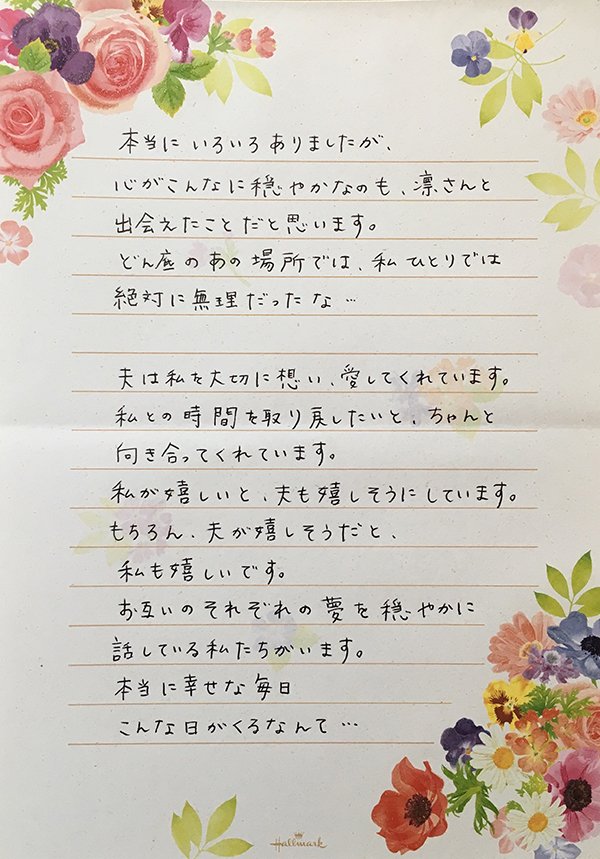 本当にいろいろありましたが、
心がこんなに穏やかなのも、凛さんと
出会えたことだと思います。
どん底のあの場所では、私ひとりでは
絶対に無理だったな…
夫は私を大切に想い、愛してくれています。
私との時間を取り戻したいと、ちゃんと
向き合ってくれています。
私が嬉しいと、夫も嬉しそうにしています。
もちろん、夫が嬉しそうだと、
私も嬉しいです。
お互いのそれぞれの夢を穏やかに
話している私たちがいます。
本当に幸せな毎日
こんな日がくるなんて…
Hallmark